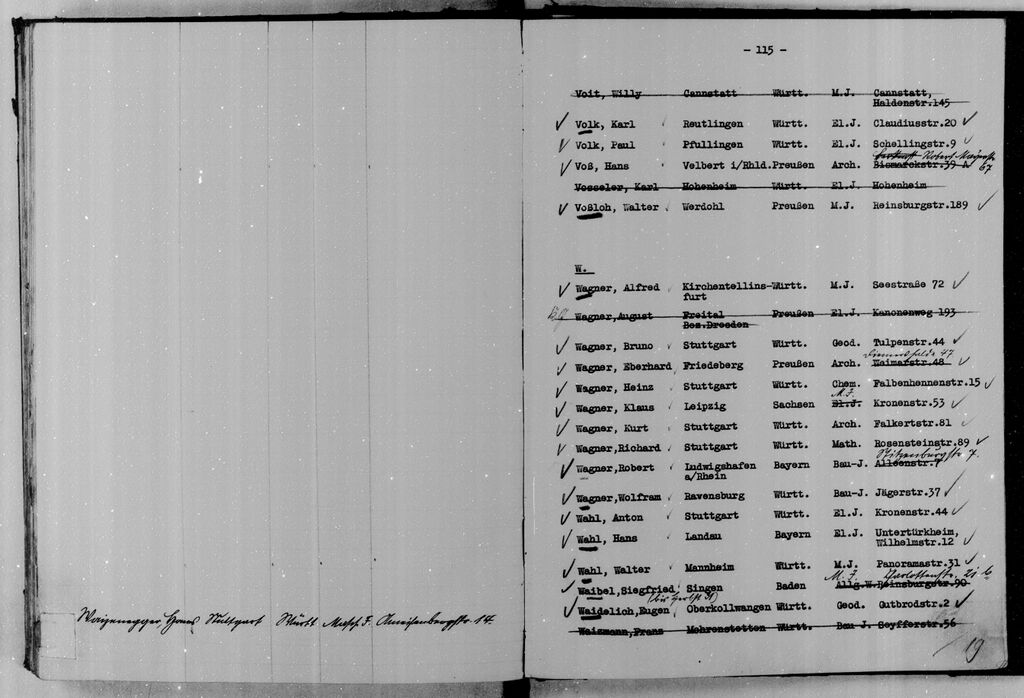 Stuttgart Württ. Masch.J. Ameisenbergstr. 14
- 115 -
Voit, Willy Cannstatt Württ. M.J. Cannstatt,
Haldenstr.145
Volk, Karl Reutlingen Württ. El.J. Claudiusstr.20
Volk, Paul Pfullingen Württ. El.J. Schellingstr.9
Robert-Mayerstr.
Voß, Hans Velbert i/Rhld.Preußen Arch. Bismarckstr.39 67
Vosseler, Karl Hohenheim Württ. El.J. Hohenheim
Voßloh, Walter Werdohl Preußen M.J. Reinsburgstr.189
W.
Wagner, Alfred Kirchentellins-Württ. M.J. Seestraße 72
furt
Wagner,August Freital Preußen El.J. Kanonenweg 193
Bez.Dresden
Wagner, Bruno Stuttgart Württ. Geod. Tulpenstr.44
47
Wagner, Eberhard Friedeberg Preußen Arch. Weimarstr.48
Wagner, Heinz Stuttgart Württ. Chem. Falbenhennenstr.15
M.J.
Wagner, Klaus Leipzig Sachsen El.J. Kronenstr.53
Wagner, Kurt Stuttgart Württ. Arch. Falkertstr.81
Wagner,Richard Stuttgart Württ. Math. Rosensteinstr.89
Stitzenburgstr. 7.
Wagner,Robert Ludwigshafen Bayern Bau-J. Alleenstr.7
a/Rhein
Wagner,Wolfram Ravensburg Württ. Bau-J. Jägerstr.37
Wahl, Anton Stuttgart Württ. El.J. Kronenstr.44
Wahl, Hans Landau Bayern El.J. Untertürkheim,
Wilhelmstr.12
Wahl, Walter Mannheim Württ. M.J. Panoramastr.31
M.J. Charlottenstr. 21 b
Waibel,Siegfried Singen Baden Allg.W.Reinsburgstr.90
Waidelich,Eugen Oberkollwangen Württ. Geod. Gutbrodstr.2
Waizmann,Franz Mehrenstetten Württ. Bau-J. Seyfferstr.56
19